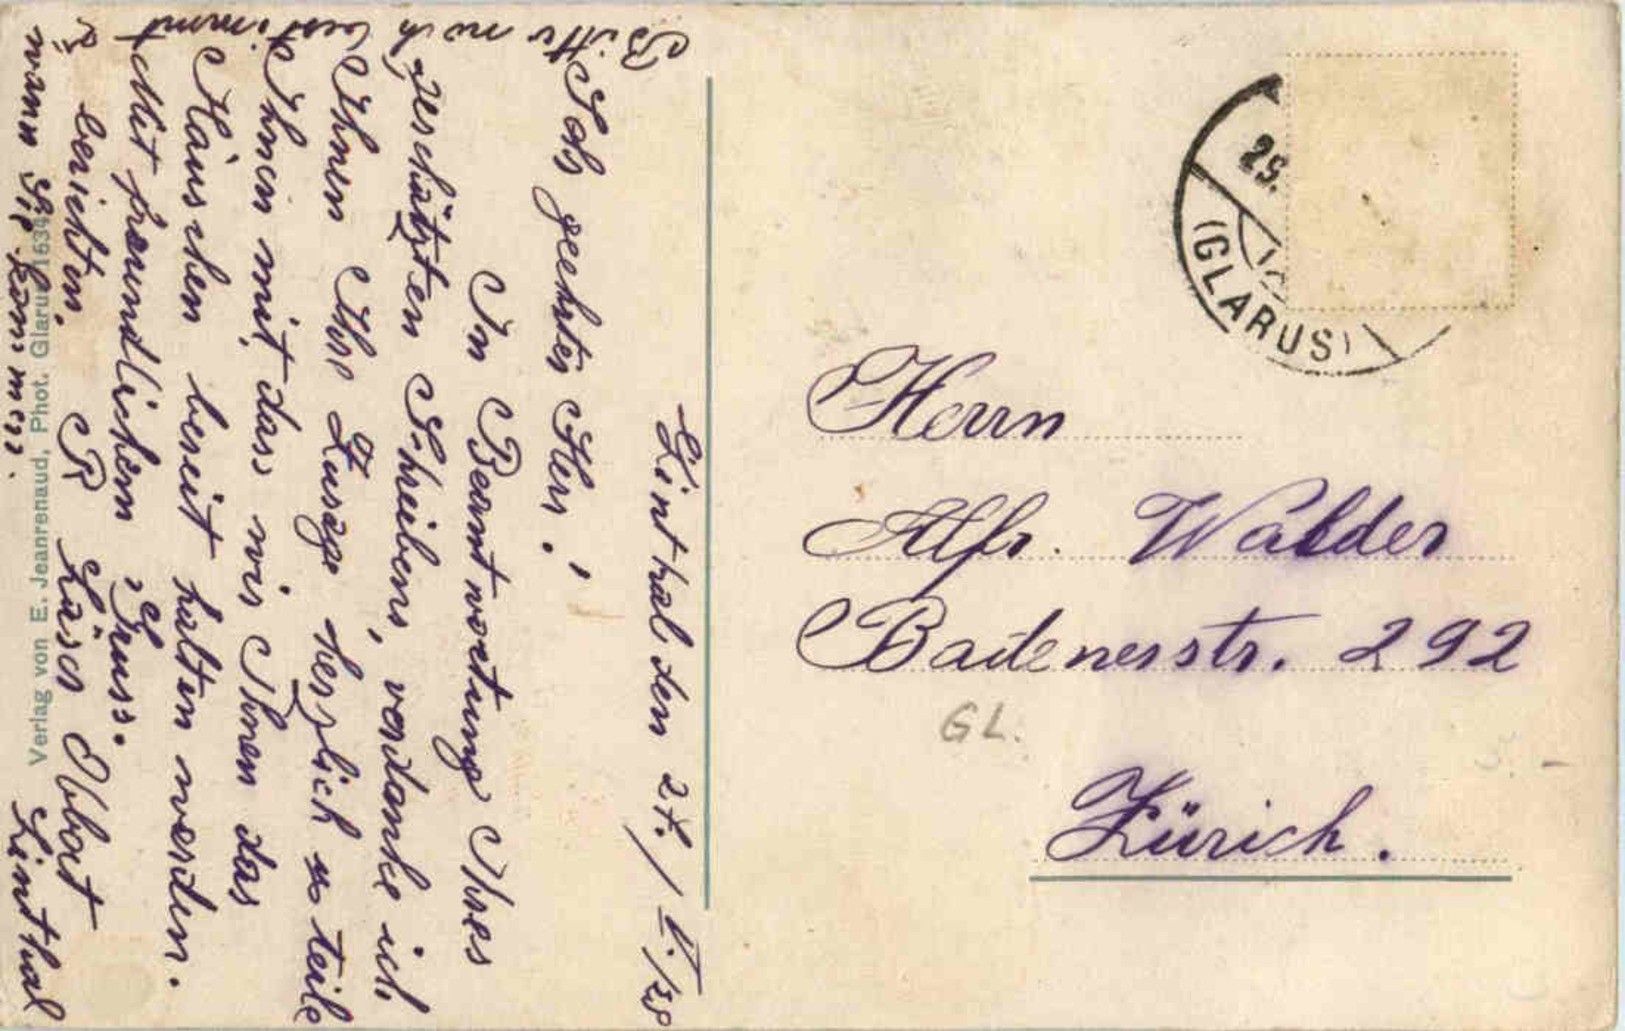 Linthal den 24./V./28
Sehr geehrter Herr!
In Beantwortung Ihres
geschätzten Schreibens, verdanke ich
Ihnen Ihre Zusage herzlich u teile
Ihnen mit, dass wir Ihnen das
Häuschen bereit halten werden.
Mit freundlichem Gruss.
R Oblart
Linthal
Bitte noch bestimmt
berichten.
wann Sie kommen.
Verlag von E. Jeanrenaud, Phot. Glarus 1634
29.
(GLARUS)
Herrn
Alfr. Walder
Badenerstr. 292
GL.
Zürich.